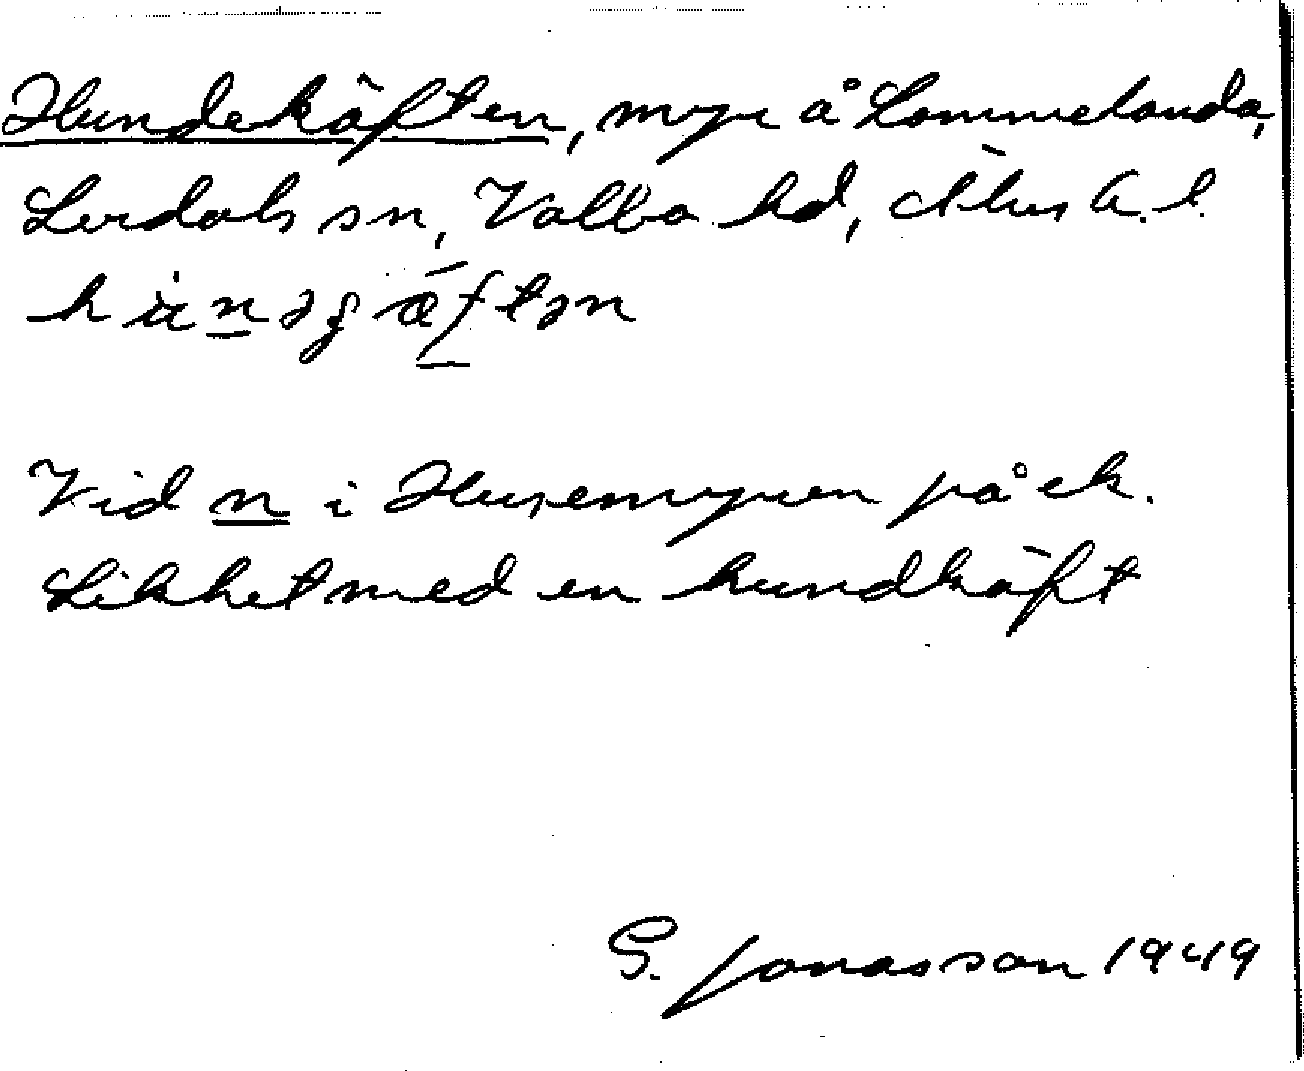 Hundekäften, myr å Lommelanda,
Lerdals sn, Valbo hd, Älvs b. l.
h u n ə g æ f t ə n
Vid n i Husemyren på ek.
Likhet med en hundkäft
G. Jonasson 1949